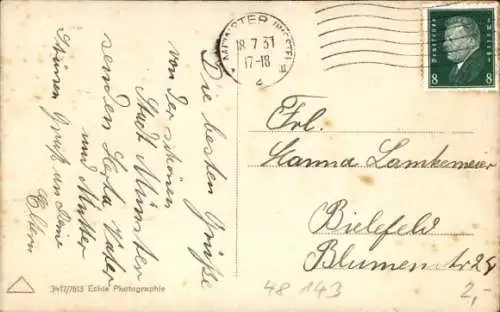 Die besten Grüße
von der schönen
Stadt Münster
senden Vater
und Mutter
Gruß an Deine
Eltern
MÜNSTER (WESTF)
18.7.31
17-18
Deutsches Reich
8 8
Frl.
Hanna Lamkemeier
Bielefeld
Blumenstr 28
3417/7613 Echte Photographie
48 143
2,-